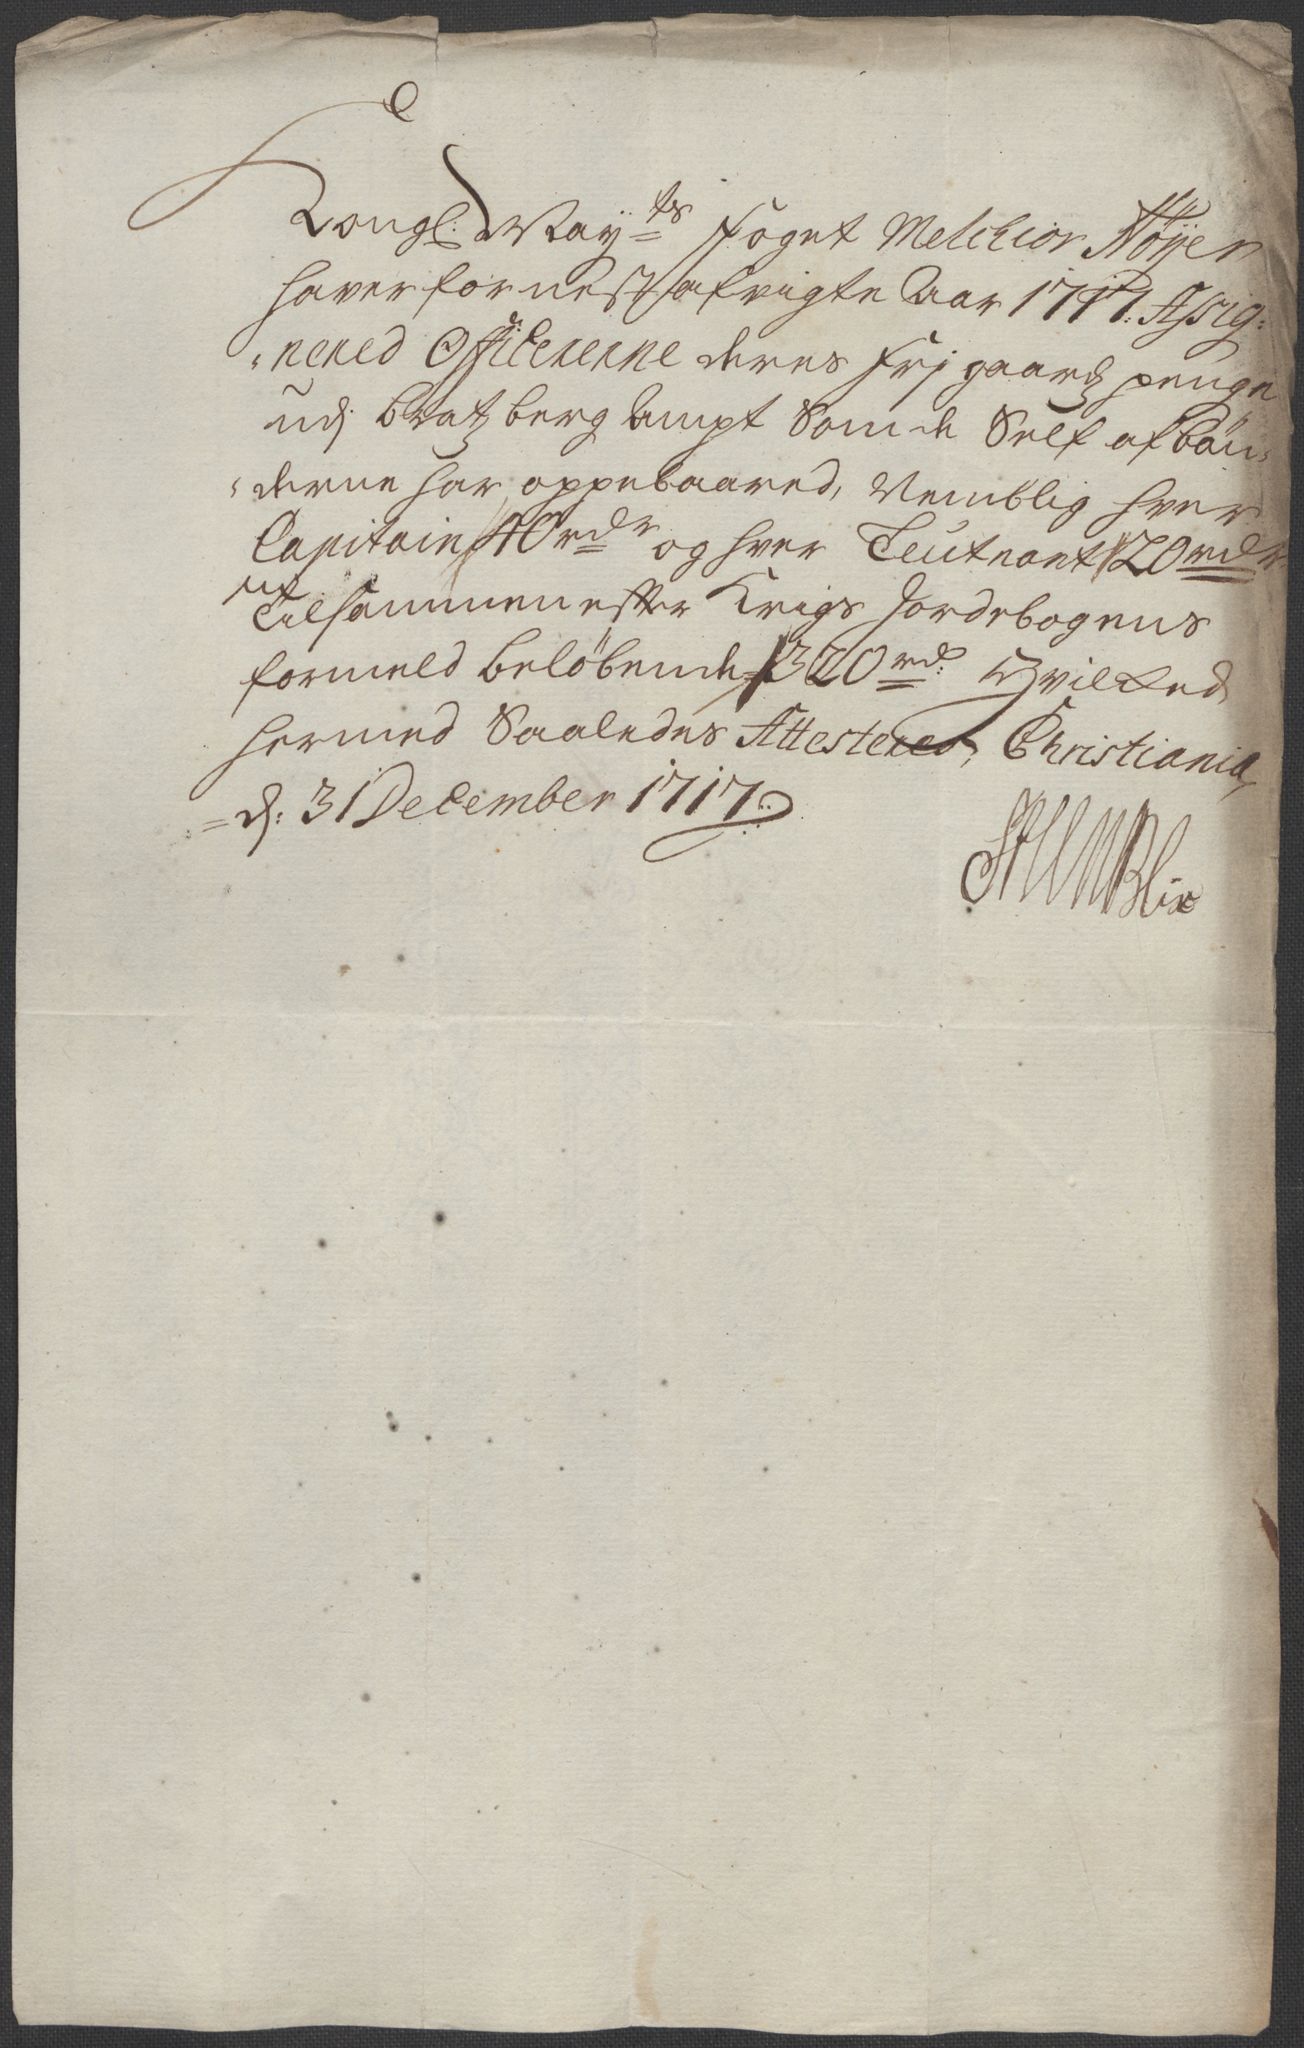 Kongl: May:ts Foget Melchior Høyer
haver for nest afvigte Aar 1717. Assig-
nered Officererne deres frj gaardz penge
udj Bratzberg Ampt Som de Self af bøn-
derne har oppebaared, Nemblig hver
Capitain 40 rdr og hver Leutnant 20 rdr
Tilsammen efter Krigs Jordebogens
formeld beløbende 320 rd: Hvilked
hermed Saaledes Attestered, Christiania
d: 31 December 1717
Blix